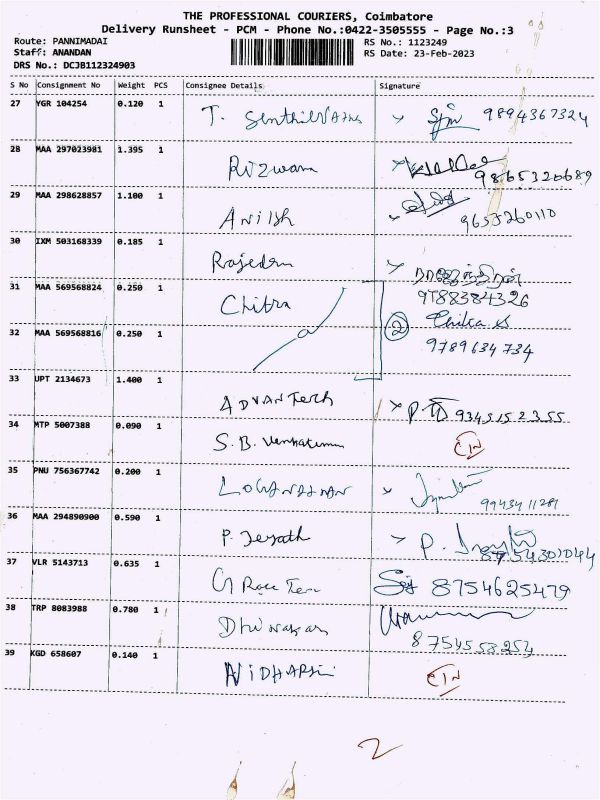 THE PROFESSIONAL COURIERS, Coimbatore
Delivery Runsheet - PCM - Phone No.:0422-3505555 - Page No.:3
Route: PANNIMADAI
Staff: ANANDAN
DRS No.: DCJB112324903
RS No.: 1123249
RS Date: 23-Feb-2023
S No Consignment No Weight PCS Consignee Details Signature
27 YGR 104254 0.120 1 T. 9894367324
28 MAA 297023981 1.395 1 Rizwana 9865320689
29 MAA 298628857 1.100 1 Anilsh 9655260110
30 IXM 503168339 0.185 1 Rajedrn
31 MAA 569568824 0.250 1 Chitra 9788384326
2 Chitra.S
32 MAA 569568816 0.250 1 9789634734
33 UPT 2134673 1.400 1 ADVANTech 9345152355
34 MTP 5007388 0.090 1 S.B.
35 PNU 756367742 0.200 1 LOGANATHAN 9943411281
36 MAA 294890900 0.590 1 P. Jeyath P.
37 VLR 5143713 0.635 1 8754625479
38 TRP 8083988 0.780 1 Dhivakar
8754558254
39 KGD 658607 0.140 1
2